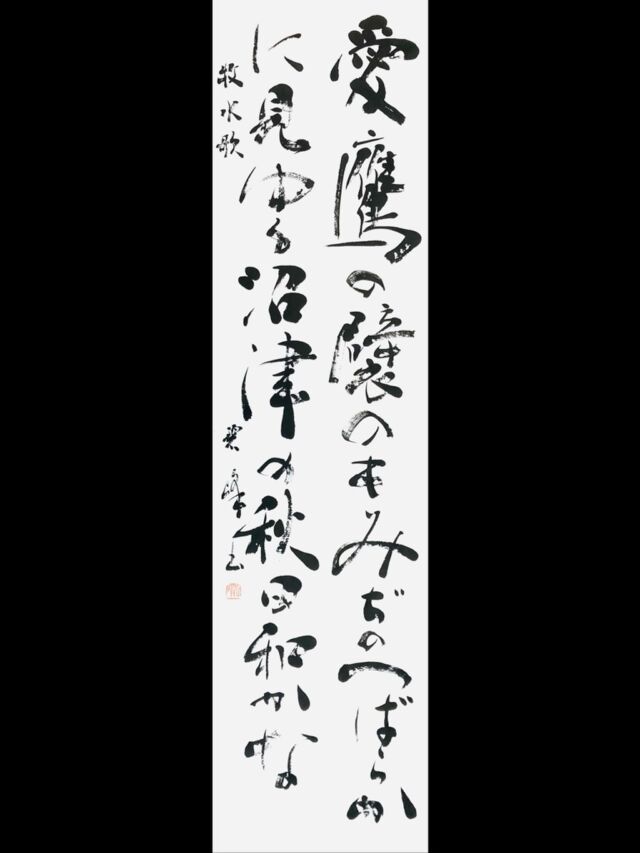 愛鷹の襞のもみぢのつばらか
に見ゆる沼津の秋日和かな
牧水歌
峰書